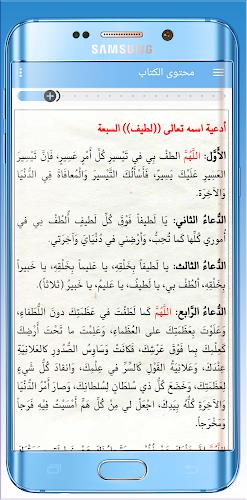 SAMSUNG
محتوى الكتاب
أدعية اسمه تعالى ((لطيف)) السبعة
الأَوَّل: اللَّهُمَّ الطفْ بِي في تَيْسِيرِ كُلِّ أَمْرٍ عَسِيرٍ، فَإِنَّ تَيْسِيرَ
العَسِيرِ عَلَيْكَ يَسِيرٌ، فَأَسْأَلُكَ التَّيْسِيرَ وَالْمُعَافَاةَ فِي الدُّنْيَا
وَالآخِرَةِ.
الدُّعاءُ الثاني: يَا لَطِيفاً فَوْقَ كُلِّ لَطِيفٍ أُلطُفْ بِي في
أُمورِي كُلِّها كَمَا تُحِبُّ، وَأَرْضِنِي في دُنْيَايَ وَآخِرَتِي.
الدُّعاءُ الثالث: يا لَطِيفاً بِخَلْقِهِ، يا عَلِيماً بِخَلْقِهِ، يا خَبِيراً
بِخَلْقِهِ، أُلطُف بي، يا لَطِيفُ، يا عَلِيمُ، يا خَبِيرُ (ثلاثاً).
الدُّعاءُ الرَّابع: اللَّهُمَّ كَمَا لَطَفْتَ فِي عَظَمَتِكَ دونَ اللُّطَفاءِ،
وَعَلَوْتَ بِعَظَمَتِكَ على العُظَماءِ، وَعَلِمْتَ ما تَحْتَ أَرْضِكَ
كَعِلْمِكَ بِما فَوْقَ عَرْشِكَ، فَكَانَتْ وَسَاوِسُ الصُّدُورِ كَالعَلانِيَةِ
عِنْدَكَ، وَعَلانِيَةُ القَوْلِ كَالسِّرِّ في عِلْمِكَ، وَانقادَ كُلُّ شَيْءٍ
لِعَظَمَتِكَ، وَخَضَعَ كُلُّ ذي سُلطانٍ لِسُلطانِكَ، وَصارَ أَمْرُ الدُّنْيَا
وَالآخِرَةِ كُلُّهُ بِيَدِكَ، اجعَلْ لي مِنْ كُلِّ هَمٍّ أَمْسَيْتُ فِيهِ فَرَجاً
وَمَخْرَجاً.